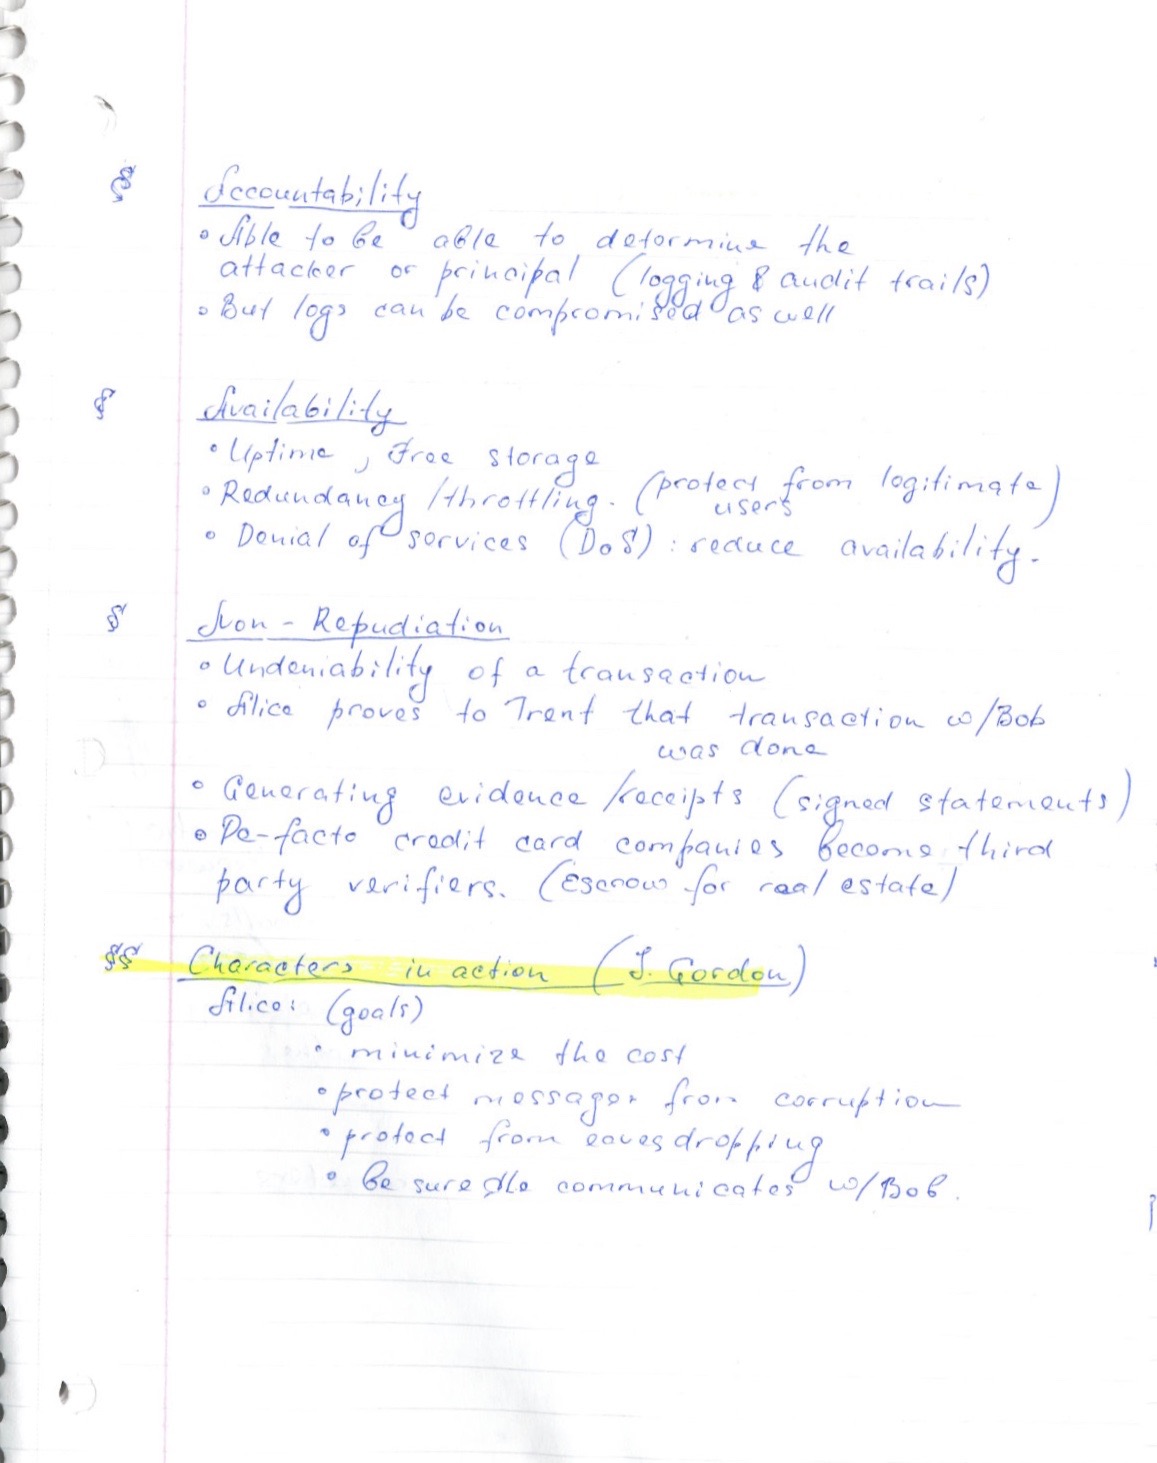 § Accountability
• Able to be able to determine the
attacker or principal (logging & audit trails)
• But logs can be compromised as well
§ Availability
• Uptime, Free storage
• Redundancy / throttling. (protect from legitimate
users)
• Denial of services (DoS) : reduce availability.
§ Non - Repudiation
• Undeniability of a transaction
• Alice proves to Trent that transaction w/Bob
was done
• Generating evidence / receipts (signed statements)
• De-facto credit card companies become third
party verifiers. (Escrow for real estate)
§§ Characters in action (J. Gordon)
Alice: (goals)
• minimize the cost
• protect messages from corruption
• protect from eavesdropping
• Be sure she communicates w/Bob.